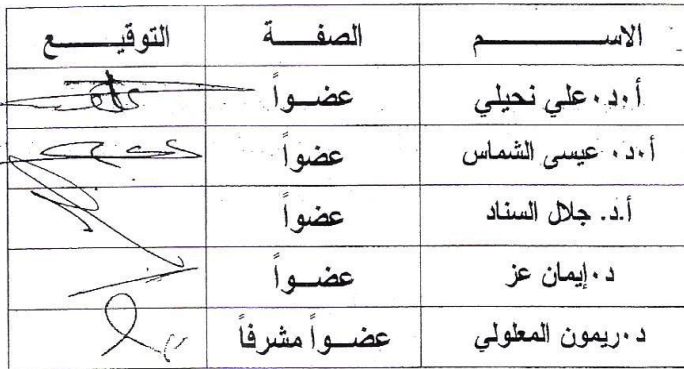 الاســـــــم الصفـــــة التوقيـــــع
أ.د. علي نحيلي عضــواً
أ.د. عيسى الشماس عضواً
أ.د. جلال السناد عضواً
د. إيمان عز عضــواً
د. ريمون المعلولي عضــواً مشرفاً